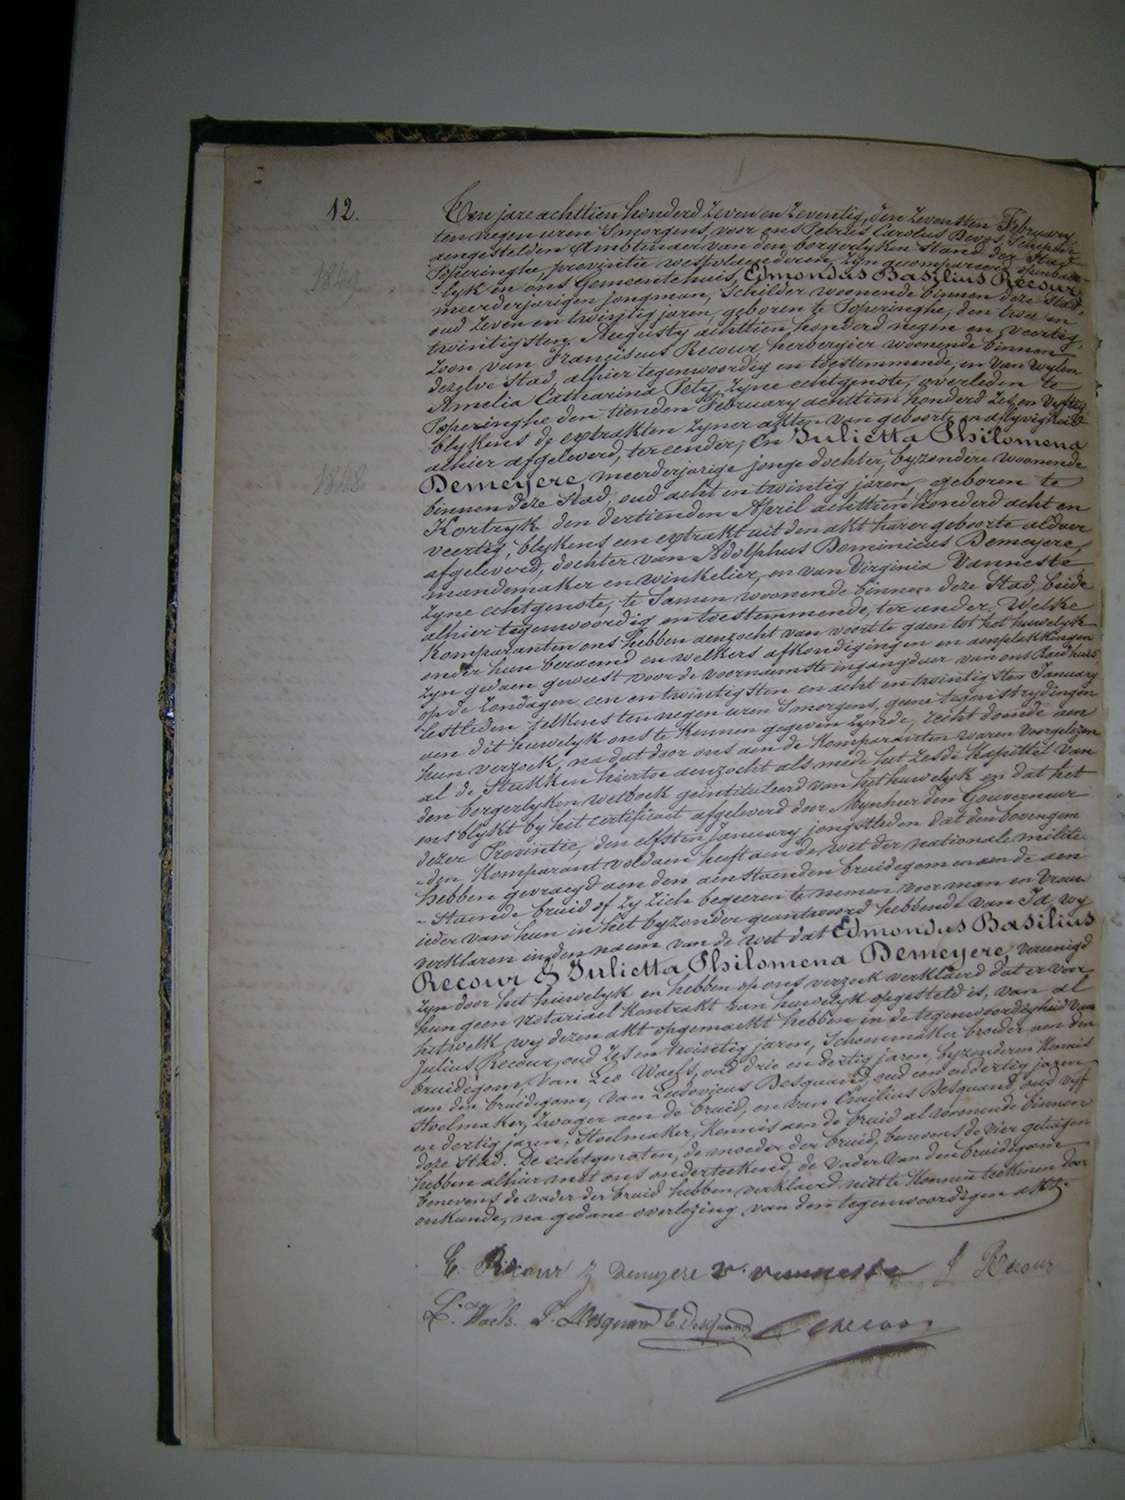 12.
Een jare achttien honderd zeven en zeventig, den zevensten February
ten negen uren 'smorgens, voor ons Petrus Carolus Devos, Schepen
aengestelden Ambtenaer van den borgerlyken stand der Stad
Poperinghe, provintie westvlaenderen, zyn gecompareerd openbaer-
-lyk in ons Gemeentehuis, Edmondus Basilius Recour,
1849
meerderjarigen jongman, schilder woonende binnen deze stad,
oud zeven en twintig jaren, geboren te Poperinghe, den twee en
twintigsten Augusty achttien honderd negen en veertig,
zoon van Franciscus Recour, herbergier woonende binnen
dezelve stad, alhier tegenwoordig en toestemmende, en van wylen
Amelia Catharina Pety, zyne echtgenote, overleden te
Poperinghe den tienden February achttien honderd zes en vyftig
blykens de extrakten zyner akten van geboorte en aflyvigheid
alhier afgeleverd, ter eender; En Julietta Philomena
1848
Demeyere, meerderjarige jonge dochter, byzondere woonende
binnen deze Stad, oud acht en twintig jaren, geboren te
Kortryk den dertienden April achttien honderd acht en
veertig, blykens een extrakt uit den akt harer geboorte aldaer
afgeleverd, dochter van Adolphus Dominicus Demeyere,
mandemaker en winkelier, en van Virginia Vanneste
zyne echtgenote, te samen woonende binnen deze Stad, beide
alhier tegenwoordig en toestemmende, ter ander, Welke
Komparanten ons hebben aenzocht van voort te gaen tot het huwelyk
onder hun beraemd en welkers afkondigingen en aenplakkingen
zyn gedaen geweest voor de voornaemste ingangdeur van ons Raedhuis
op de zondagen een en twintigsten en acht en twintigsten January
lestleden telkens ten negen uren 'smorgens, geene tegenstrydingen
aen dit huwelyk ons te kennen gegeven zynde, recht doende aen
hun verzoek, na dat door ons aen de Komparanten waren voorgelezen
al de Stukken hiertoe aenzocht als mede het zesde Kapittel van
den borgerlyken wetboek geintituleerd van het huwelyk en dat het
ons blykt by het certificaet afgeleverd door Mynheer den Gouverneur
dezer Provintie, den elfsten January jongstleden dat den bovengem
-den Komparant voldaen heeft aen de wet der nationale militie
hebben gevraegd aen den aenstaenden bruidegom en aen de aen
-staende bruid of zy zich begeeren te nemen voor man en vrouw
ieder van hun in het byzonder geantwoord hebbende van Ja, wy
verklaren in den naem van de wet dat Edmondus Basilius
Recour & Julietta Philomena Demeyere, vereenigd
zyn door het huwelyk en hebben op ons verzoek verklaerd dat er voor
hun geen notariael kontrakt van huwelyk opgesteld is, van al
hetwelk wy dezen akt opgemaekt hebben in de tegenwoordigheid van
Julius Recour, oud zes en twintig jaren, schoenmaker, broeder aen den
bruidegom, van Leo Waels, oud drie en dertig jaren, byzonderen kennis
aen den bruidegom, van Ludovicus Desquand, oud een en dertig jaren
stoelmaker, zwager aen de bruid, en van Emilius Desquand, oud vyf
en dertig jaren, stoelmaker, kennis aen de bruid al woonende binnen
deze stad. De echtgenoten, de moeder der bruid, benevens de vier getuigen
hebben alhier met ons onderteekend, de vader van den bruidegom
benevens de vader der bruid hebben verklaerd niet te konnen teekenen door
onkunde, na gedane overlezing van den tegenwoordigen akt.
E. Recour J Demeyere V. Vanneste J Recour
L. Waels L. Desquand E. Desquand